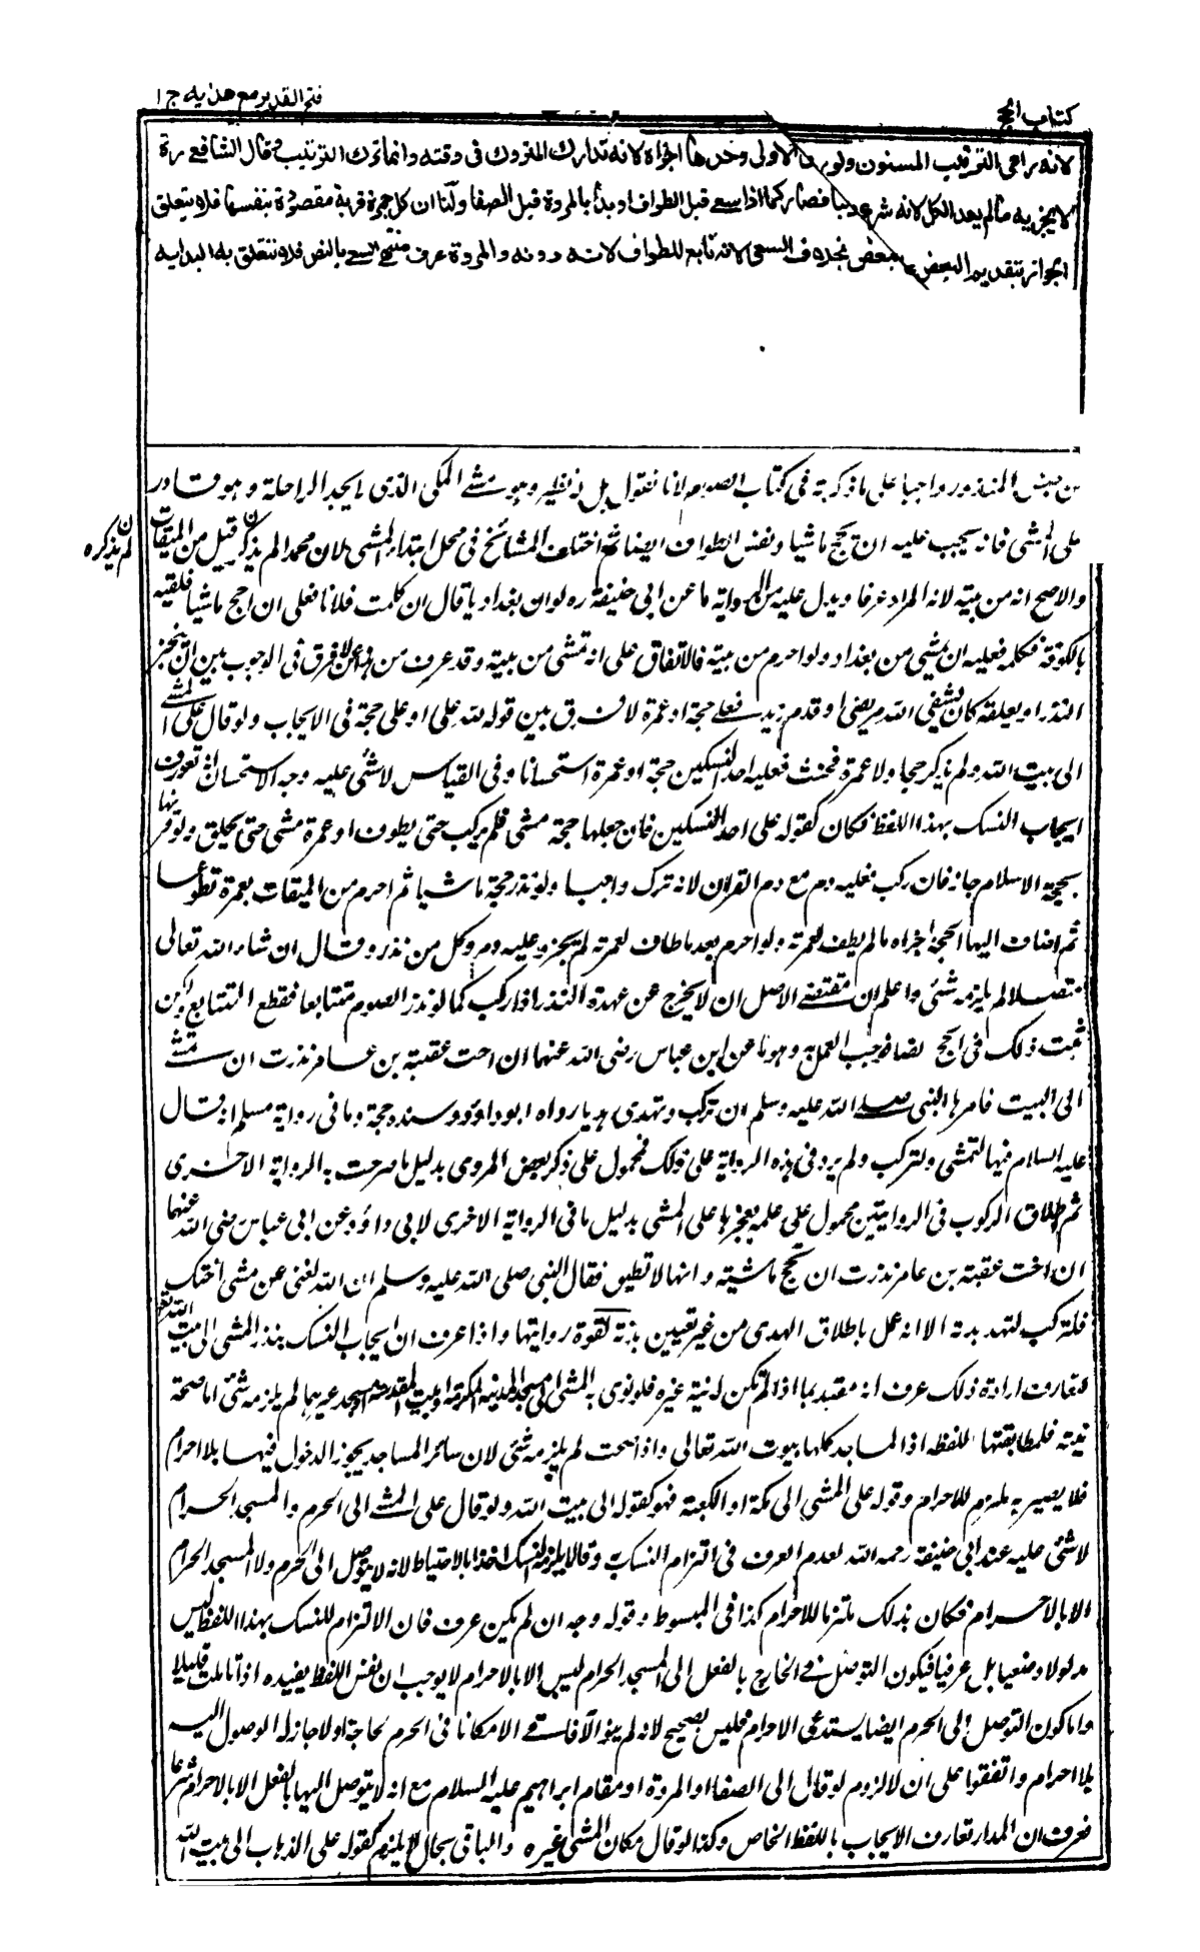 فتح القدير مع هدايه ج ١
كتاب الحج
لانه راعى الترتيب المسنون ولو رمى الاولى وحدها اجزاه لانه تدارك المتروك فى وقته وانما ترك الترتيب وقال الشافعے رہ
لا يجزيه مالم يعد الكل لانه شرع مرتبا فصار كما اذا سعے قبل الطواف او بدأ بالمروة قبل الصفا ولنا ان كل جمرة قربة مقصودة بنفسها فلا يتعلق
الجواز بتقديم البعض على البعض بخلاف السعى لانه تابع للطواف لانه دونه والمروة عرف منتهى السعے بالنص فلا تتعلق به البداية
من جنس المنذور واجبا على ما ذكرته فى كتاب الصوم لانا نقول بل له نظير وهو مشے المكى الذى لا يجد الراحلة وهو قادر
على المشى فانه يجب عليه ان يحج ماشيا ونفس الطواف ايضا ثم اختلف المشائخ فى محل ابتداء المشى لان محمدا لم يذكره قيل من الميقات
ن لم يذكره
والاصح انه من بيته لانه المراد عرفا ويدل عليه من الرواية ما عن ابى حنيفة رہ لو ان بغداديا قال ان كلمت فلانا فعلى ان احج ماشيا فلقيه
بالكوفة فكلمه فعليه ان يمشى من بغداد ولو احرم من بيته فالاتفاق على انه تمشى من بيته وقد عرف من هذا ان لا فرق فى الوجوب بين ان ينجز
النذر او يعلقه كان شفى الله مريضى او قدم زيد فعلے حجة او عمرة لا فرق بين قوله لله على او على حجة فى الايجاب ولو قال على المشے
الى بيت الله ولم يذكر حجا ولا عمرة فحنث فعليه احد النسكين حجة او عمرة استحسانا وفى القياس لا شئى عليه وجه الاستحسان انه تعورف
ايجاب النسك بهذا اللفظ فكان كقوله على احد النسكين فان جعلها حجة مشى فلم يركب حتى يطوف او عمرة مشى حتى يحلق ولو قرنها
بحجة الاسلام جاز فان ركب فعليه دم مع دم القران لانه ترك واجبا ولو نذر حجة ماشيا ثم احرم من الميقات بعمرة تطوعا
ثم اضاف اليها الحجة اجزاه مالم يطف لعمرته ولو احرم بعد ما طاف لعمرته لم يجزه وعليه دم وكل من نذر وقال ان شاء الله تعالى
متصلا لم يلزمه شئى واعلم ان مقتضے الاصل ان لا يخرج عن عهدة النذر اذا ركب كما لو نذر الصوم متتابعا فقطع التتابع لكن
ثبت ذلك فى الحج نصا فوجب العمل به وهو ما عن ابن عباس رضى الله عنهما ان اخت عقبة بن عامر نذرت ان تمشے
الى البيت فامرها النبى صلے الله عليه وسلم ان تركب وتهدى هديا رواه ابو داؤد وسنده حجة وما فى رواية مسلم انه قال
عليه السلام فيها لتمشى ولتركب ولم يرد فى هذه الرواية على ذلك فمحمول على ذكر بعض المروى بدليل ما صرحت به الرواية الاخرى
ثم اطلاق الركوب فى الروايتين محمول على علمه بعجزها على المشى بدليل ما فى الرواية الاخرى لابى داؤد وعن ابى عباس رضى الله عنهما
ان اخت عقبة بن عامر نذرت ان تحج ماشية وانها لا تطيق فقال النبى صلى الله عليه وسلم ان الله لغنى عن مشى اختك
فلتركب لتهد بدنة الا انه عمل باطلاق الهدى من غير تعيين بدنة لقوة روايتها واذا عرف ان ايجاب النسك بنذر المشى الى بيت الله تعالى
لتعارف ارادة ذلك عرف انه مقيد بما اذا لم تكن له نية غيره فلو نوى به المشى الى مسجد المدينة المكرمة او بيت المقدس او مسجد غيرهما لم يلزمه شئى اما صحة
نيته فلمطابقتها للفظه اذ المساجد كلها بيوت الله تعالى واذا صحت لم يلزمه شئى لان سائر المساجد يجوز الدخول فيها بلا احرام
فلا يصير به ملتزم للاحرام وقوله على المشى الى مكة او الكعبة فهو كقوله الى بيت الله ولو قال على المشے الى الحرم والمسجد الحرام
لا شئى عليه عند ابى حنيفة رحمه الله لعدم العرف فى التزام النسك به وقالا يلزمه النسك اخذا بالاحتياط لانه لا يتوصل الى الحرم ولا المسجد الحرام
الا بالاحرام فكان بذلك ملتزما للاحرام كذا فى المبسوط وقوله وجه ان لم يكن عرف فان الالتزام للنسك بهذا اللفظ ليس
مدلولا وضعيا بل عرفيا فيكون التوصل فے الخارج بالفعل الى المسجد الحرام ليس الا بالاحرام لا يوجب ان نفس اللفظ يفيده اذا تاملت قليلا
واما كون التوصل الى الحرم ايضا يستدعى الاحرام فليس بصحيح لانه لم ينو الآفاقے الا مكانا فى الحرم لحاجة اولا جاز له الوصول اليه
بلا احرام واتفقوا على ان لا لزوم لو قال الى الصفا او المروة او مقام ابراهيم عليه السلام مع انه لا يتوصل اليها بالفعل الا بالاحرام شرعا
فعرف ان المدار تعارف الايجاب باللفظ الخاص وكذا لو قال مكان المشى غيره والباقى بحاله لا يلزم كقوله على الذهاب الى بيت الله